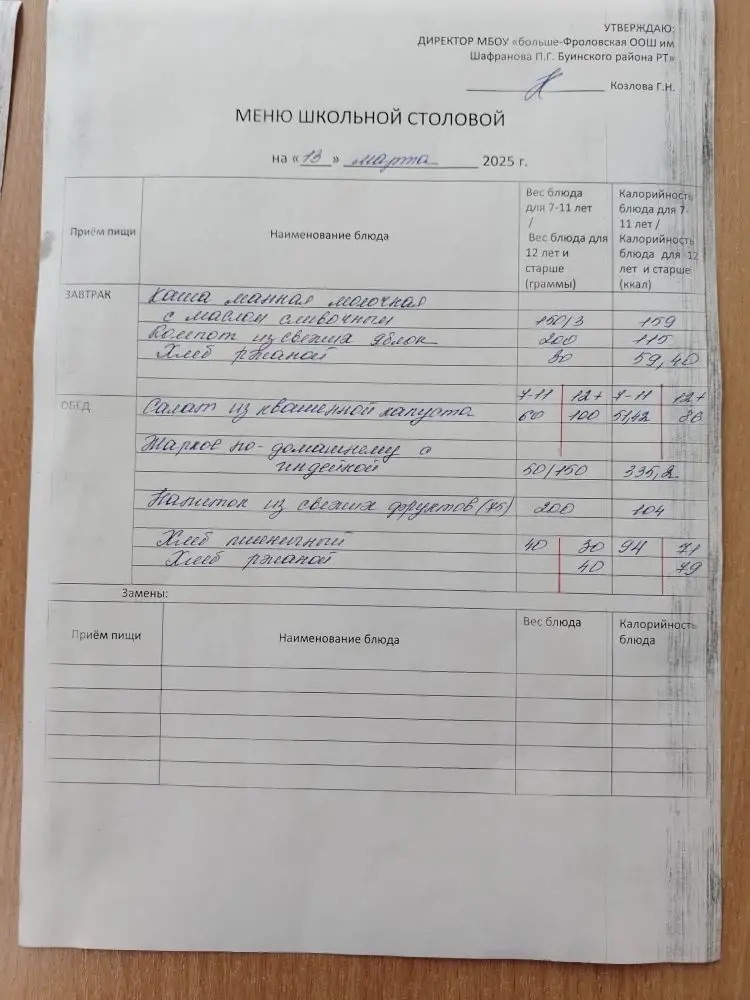 УТВЕРЖДАЮ:
ДИРЕКТОР МБОУ «больше-Фроловская ООШ им
Шафранова П.Г. Буинского района РТ»
Козлова Г.Н.
МЕНЮ ШКОЛЬНОЙ СТОЛОВОЙ
на «13» марта 2025 г.
Приём пищи
Наименование блюда
Вес блюда
для 7-11 лет
/
Вес блюда для
12 лет и
старше
(граммы)
Калорийность
блюда для 7-
11 лет /
Калорийность
блюда для 12
лет и старше
(ккал)
ЗАВТРАК
Каша манная молочная
с маслом сливочным 150/3 159
Компот из свежих яблок 200 115
Хлеб ржаной 30 59,40
7-11 12+ 7-11 12+
ОБЕД Салат из квашенной капуста 60 100 51,42 86
Жаркое по-домашнему с
индейкой 50/150 335,2
Напиток из свежих фруктов (75) 200 104
Хлеб пшеничный 40 30 94 71
Хлеб ржаной 40 79
Замены:
Приём пищи
Наименование блюда
Вес блюда
Калорийность
блюда